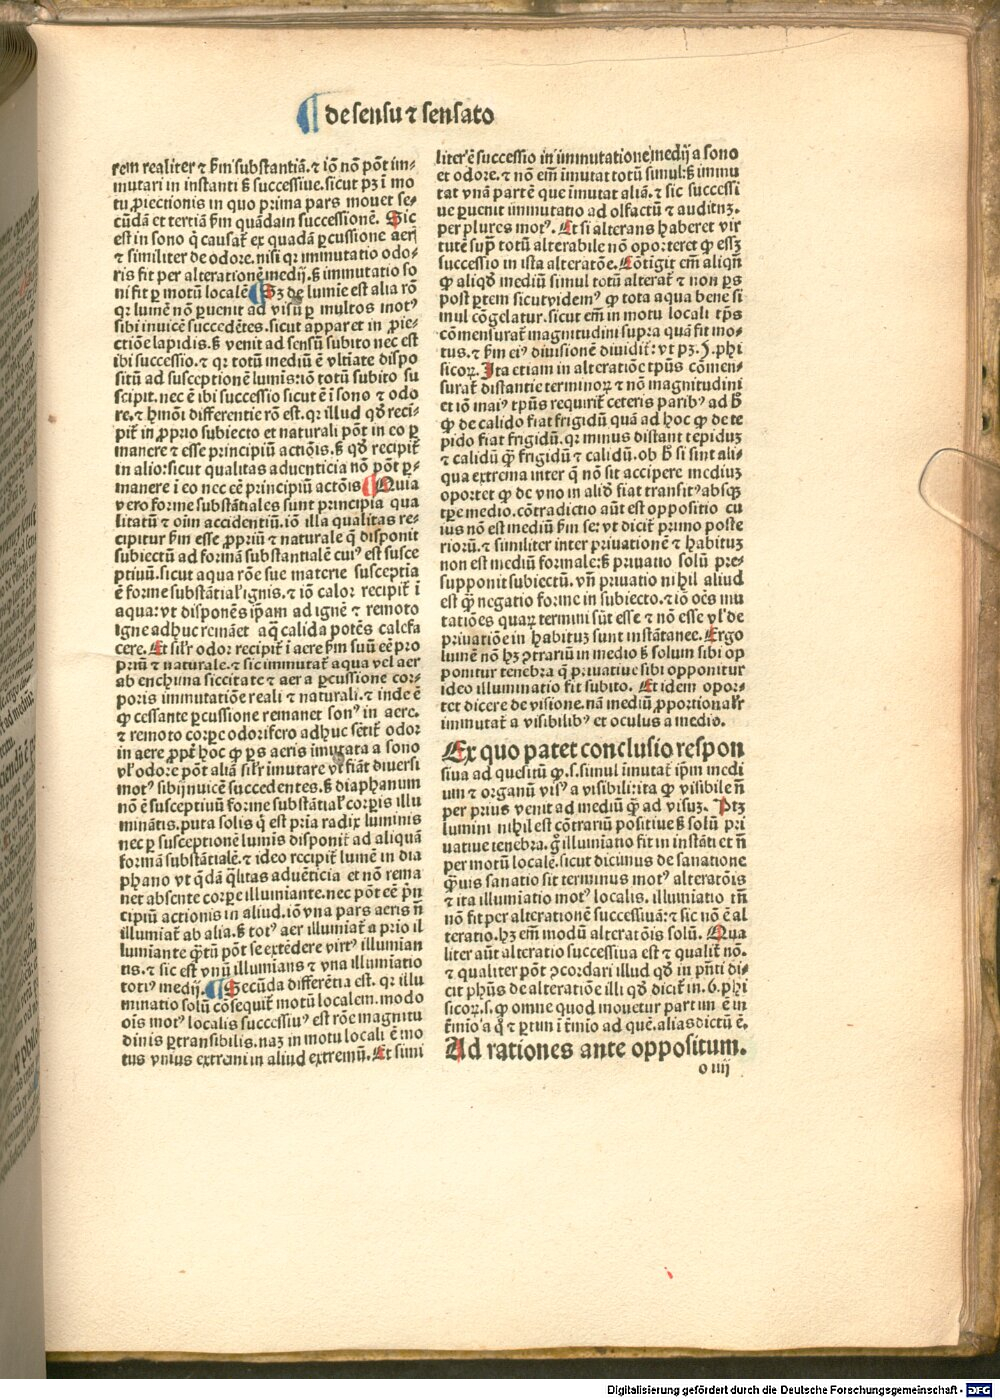 de sensu ⁊ sensato
rem realiter ⁊ ẞm substantiā. ⁊ iō nō pōt im-
mutari in instanti ẞ successiue. sicut pꝫ ī mo
tu ꝓiectionis in quo prima pars mouet se-
cūdā et tertiā ẞm quādam successionē. Sic
est in sono q̄ causat̄ ex quadā ꝑcussione aerꝭ
⁊ similiter de odore. nisi qꝛ immutatio odo-
ris fit per alterationē medij. ẞ immutatio so
ni fit ꝑ motū localē Sꝫ de lumīe est alia rō
qꝛ lumē nō ꝑuenit ad visū ꝑ multos motꝰ
sibi inuicē succedētes. sicut apparet in ꝓiec-
ctiōe lapidis. ẞ venit ad sensū subito nec est
ibi successio. ⁊ qꝛ totū mediū ē vltīate dispo
sitū ad susceptionē lumīs: iō totū subito su
scipit. nec ē ibi successio sicut ē ī sono ⁊ odo
re. ⁊ hmōi differentie rō est. qꝛ illud qđ reci-
pit̄ in ꝓprio subiecto et naturali pōt in eo ꝑ
manere ⁊ esse principiū actiōis. ẞ qđ recipit̄
in alio: sicut qualitas aduenticia nō pōt ꝑ-
manere ī eo nec eē principiū actōis Quia
vero forme substātiales sunt principia qua
litatū ⁊ oīm accidentiū. iō illa qualitas re-
cipitur ẞm esse ꝓpriū ⁊ naturale q̄ disponit
subiectū ad formā substantialē cuiꝰ est susce
ptiuū. sicut aqua rōe sue materie susceptia
ē forme substātial̓ ignis. ⁊ iō calor recipit̄ ī
aqua: vt disponēs ip̄am ad ignē ⁊ remoto
igne adhuc remāet aq̄ calida potēs calefa
cere. Et sil̓r odor recipit̄ ī aere ẞm suū eē pro
priū ⁊ naturale. ⁊ sic immutat̄ aqua vel aer
ab enchima siccitate ⁊ aer a ꝑcussione cor-
poris immutatiōe reali ⁊ naturali. ⁊ inde ē
ꝙ cessante ꝑcussione remanet sonꝰ in aere.
⁊ remoto corꝑe odorifero adhuc sētit̄ odor
in aere ꝓpt̄ hoc ꝙ ꝑs aeris imutata a sono
vl̓ odore pōt aliā sil̓r imutare vt fiāt diuersi
motꝰ sibij̄nuicē succedentes. ẞ diaphanum
nō ē susceptiuū forme substātial̓ corꝑis illu
minātis. puta solis q̄ est pria radix luminis
nec ꝑ susceptionē lumīs disponit̄ ad aliquā
formā substātialē. ⁊ ideo recipit̄ lumē in dia
phano vt q̄dā q̄litas aduēticia et nō rema
net absente corꝑe illuminante. nec pōt eē pn̄
cipiū actionis in aliud. iō vna pars aeris n̄
illumiat̄ ab alia. ẞ totꝰ aer illumiat̄ a prio il
luminante q̄tū pōt se extēdere virtꝰ illumian
tis. ⁊ sic est vnū illumians ⁊ vna illumiatio
totiꝰ medij. Secūda differētia est. qꝛ illu
minatio solū cōsequit̄ motū localem. modo
oīs motꝰ localis successiuꝰ est rōe magnitu
dinis ꝑtransibilis. naꝫ in motu locali ē mo
tus vnius extremi in aliud extremū. Et simi
liter ē successio in immutatione medij a sono
et odore. ⁊ nō em̄ imutat totū simul: ẞ immu
tat vnā partē que imutat aliā. ⁊ sic successi
ue ꝑuenit immutatio ad olfactū ⁊ auditūꝫ.
per plures motꝰ. Et si alterans haberet vir
tutē suꝑ totū alterabile nō oporteret ꝙ esseꝫ
successio in ista alteratōe. Cōtigit em̄ aliqn̄
ꝙ aliqđ mediū simul totū alterat̄ ⁊ non ꝑs
post ꝑtem sicut videmꝰ ꝙ tota aqua bene si
mul cōgelatur. sicut em̄ in motu locali tp̄s
cōmensurat̄ magnitudini supra quā fit mo-
tus. ⁊ ẞm eiꝰ diuisionē diuidit̄: vt pꝫ. 7. phi
sicoꝝ. Ita etiam in alteratiōe tp̄us cōmen-
surat̄ distantie terminoꝝ ⁊ nō magnitudini
et iō maiꝰ tp̄us requirit̄ ceteris paribꝰ ad ħ
ꝙ de calido fiat frigidū quā ad hoc ꝙ de te
pido fiat frigidū. qꝛ minus distant tepiduꝫ
⁊ calidū q̄ frigidū ⁊ calidū. ob ħ si sint ali-
qua extrema inter q̄ nō sit accipere mediuꝫ
oportet ꝙ de vno in aliđ fiat transitꝰ absqꝫ
tp̄e medio. cōtradictio aūt est oppositio cu
ius nō est mediū ẞm se: vt dicit̄ primo poste
riorū. ⁊ similiter inter priuationē ⁊ habituꝫ
non est mediū formale: ẞ priuatio solū pre-
supponit subiectū. vn̄ priuatio nihil aliud
est q̄ negatio forme in subiecto. ⁊ iō oēs mu
tatiōes quaꝝ termini sūt esse ⁊ nō esse vl̓ de
priuatiōe in habituꝫ sunt instātanee. Ergo
lumē nō hꝫ ꝯtrariū in medio ẞ solum sibi op
ponitur tenebra q̄ priuatiue sibi opponitur
ideo illuminatio fit subito. Et idem opor-
tet dicere de visione. nā mediū ꝓportional̓r
immutat̄ a visibilibꝰ et oculus a medio.
Ex quo patet conclusio respon
siua ad quesitū ꝙ. s. simul imutat̄ ip̄m medi
um ⁊ organū visꝰ a visibili: ita ꝙ visibile n̄
per prius venit ad mediū q̄ ad visuꝫ. Ptꝫ
lumini nihil est cōtrariū positiue ẞ solū pri
uatiue tenebra. g̊ illumiatio fit in instāti et n̄
per motū localē. sicut dicimus de sanatione
q̄uis sanatio sit terminus motꝰ alteratōis
⁊ ita illumiatio motꝰ localis. illumiatio tn̄
nō fit per alterationē successiuā: ⁊ sic nō ē al
teratio. hꝫ em̄ modū alteratōis solū. Qua
liter aūt alteratio successiua est ⁊ qualit̄ nō.
⁊ qualiter pōt ꝯcordari illud qđ in pn̄ti di-
cit ph̄us de alteratiōe illi qđ dicit̄ in. 6. phi
sicoꝝ. s. ꝙ omne quod mouetur partim ē in
t̄mio a q̊ ⁊ ꝑtim ī t̄mio ad quē. alias dictū ē.
Ad rationes ante oppositum.
o iiij
Digitalisierung gefördert durch die Deutsche Forschungsgemeinschaft - DFG